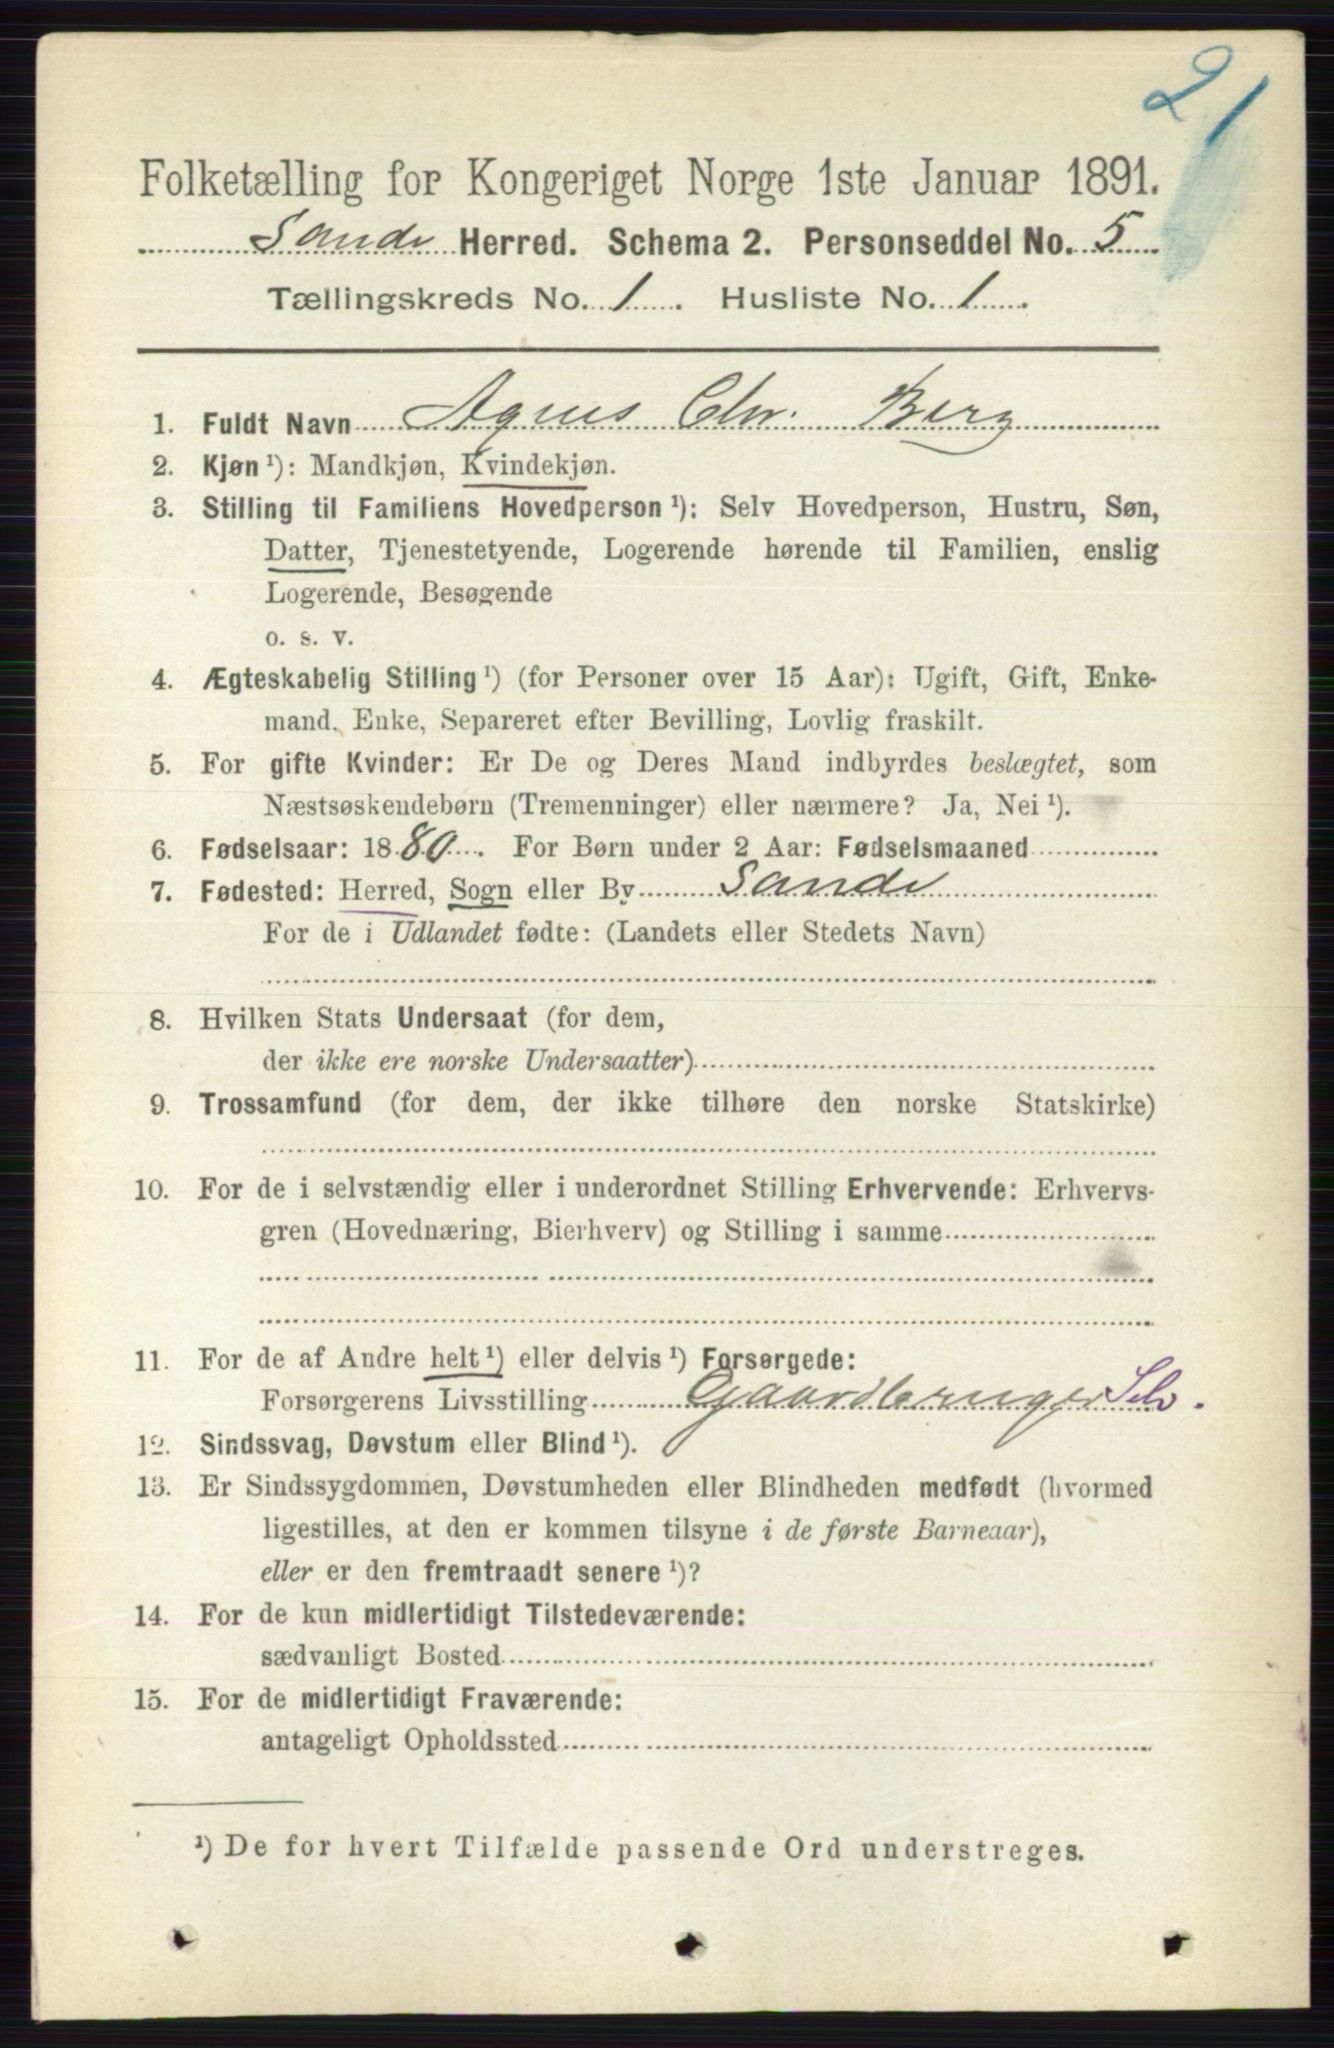 21
Folketælling for Kongeriget Norge 1ste Januar 1891.
Sande Herred. Schema 2. Personseddel No. 5
Tællingskreds No. 1. Husliste No. 1.
1. Fuldt Navn Agnes Chr. Berg
2. Kjøn ¹): Mandkjøn, Kvindekjøn.
3. Stilling til Familiens Hovedperson ¹): Selv Hovedperson, Hustru, Søn,
Datter, Tjenestetyende, Logerende hørende til Familien, enslig
Logerende, Besøgende
o. s. v.
4. Ægteskabelig Stilling ¹) (for Personer over 15 Aar): Ugift, Gift, Enke-
mand, Enke, Separeret efter Bevilling, Lovlig fraskilt.
5. For gifte Kvinder: Er De og Deres Mand indbyrdes beslægtet, som
Næstsøskendebørn (Tremenninger) eller nærmere? Ja, Nei ¹).
6. Fødselsaar: 1880. For Børn under 2 Aar: Fødselsmaaned
7. Fødested: Herred, Sogn eller By Sande
For de i Udlandet fødte: (Landets eller Stedets Navn)
8. Hvilken Stats Undersaat (for dem,
der ikke ere norske Undersaatter)
9. Trossamfund (for dem, der ikke tilhøre den norske Statskirke)
10. For de i selvstændig eller i underordnet Stilling Erhvervende: Erhvervs-
gren (Hovednæring, Bierhverv) og Stilling i samme
11. For de af Andre helt ¹) eller delvis ¹) Forsørgede:
Forsørgerens Livsstilling Gaardbruger Selv.
12. Sindssvag, Døvstum eller Blind ¹).
13. Er Sindssygdommen, Døvstumheden eller Blindheden medfødt (hvormed
ligestilles, at den er kommen tilsyne i de første Barneaar),
eller er den fremtraadt senere ¹)?
14. For de kun midlertidigt Tilstedeværende:
sædvanligt Bosted
15. For de midlertidigt Fraværende:
antageligt Opholdssted
¹) De for hvert Tilfælde passende Ord understreges.